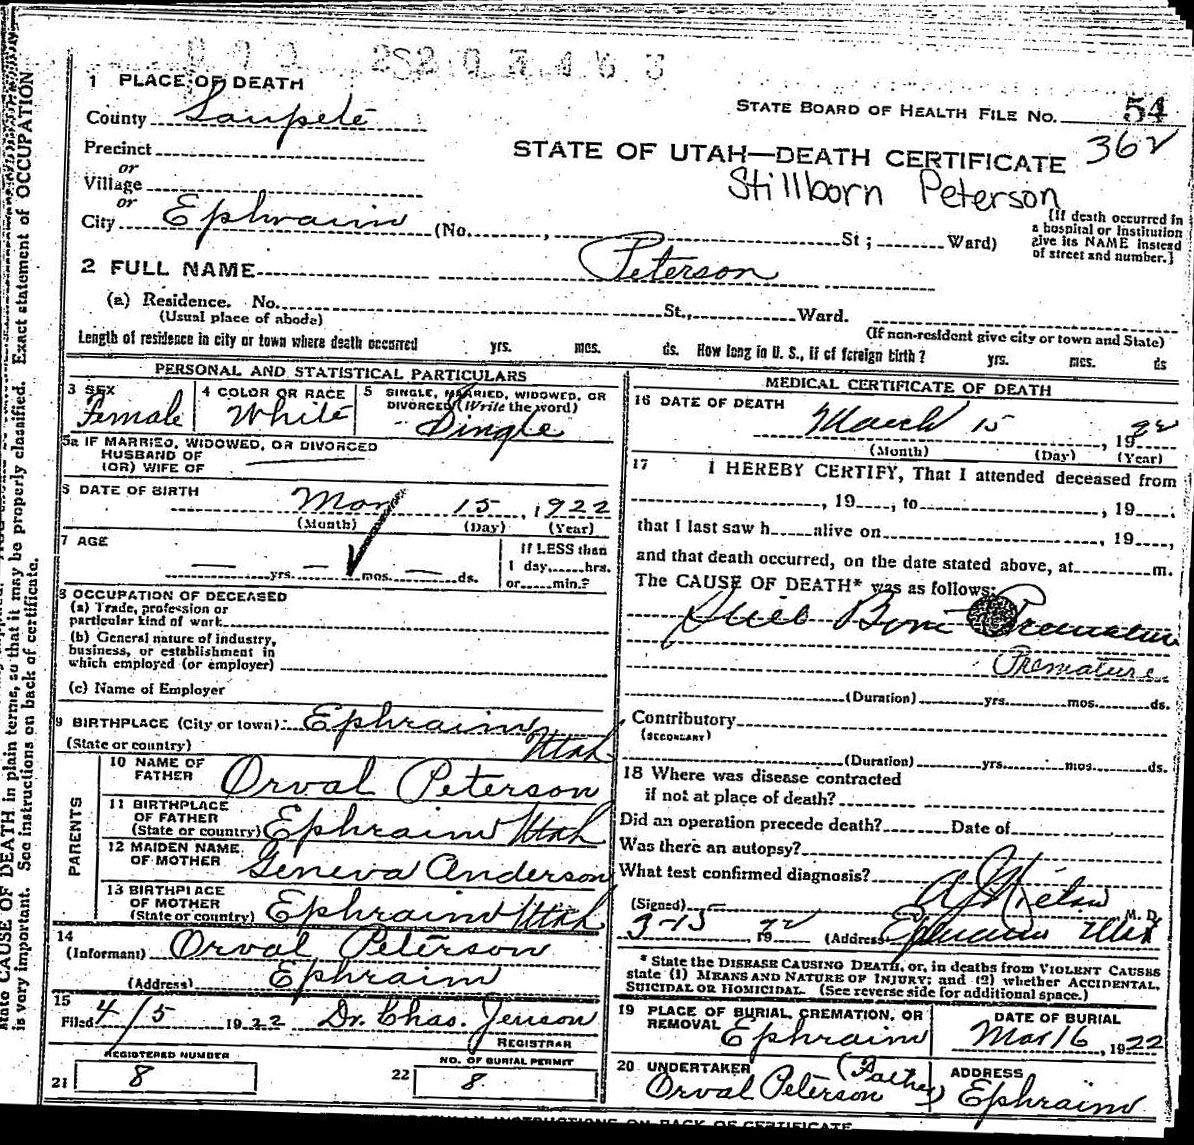 1 PLACE OF DEATH
County Sanpete
STATE BOARD OF HEALTH FILE NO. 54
362
Precinct
or
Village
or
STATE OF UTAH—DEATH CERTIFICATE
Stillborn Peterson
City Ephraim (No. , St ; Ward)
[If death occurred in
a hospital or Institution
give its NAME instead
of street and number.]
2 FULL NAME Peterson
(a) Residence. No. St., Ward.
(Usual place of abode)
(If non-resident give city or town and State)
Length of residence in city or town where death occurred yrs. mos. ds. How long in U. S., if of foreign birth? yrs. mos. ds
PERSONAL AND STATISTICAL PARTICULARS
3 SEX
Female
4 COLOR OR RACE
White
5 SINGLE, MARRIED, WIDOWED, OR
DIVORCED (Write the word)
Single
5a IF MARRIED, WIDOWED, OR DIVORCED
HUSBAND OF
(OR) WIFE OF
6 DATE OF BIRTH
Mar 15, 1922
(Month) (Day) (Year)
7 AGE
yrs. mos. ds.
If LESS than
1 day, hrs.
or min.?
8 OCCUPATION OF DECEASED
(a) Trade, profession or
particular kind of work
(b) General nature of industry,
business, or establishment in
which employed (or employer)
(c) Name of Employer
9 BIRTHPLACE (City or town) Ephraim
(State or country) Utah
PARENTS
10 NAME OF
FATHER Orval Peterson
11 BIRTHPLACE
OF FATHER
(State or country) Ephraim Utah
12 MAIDEN NAME
OF MOTHER Geneva Anderson
13 BIRTHPLACE
OF MOTHER
(State or country) Ephraim Utah
14
(Informant) Orval Peterson
(Address) Ephraim
15
Filed 4/5 1922 Dr. Chas. Jenson
REGISTRAR
REGISTERED NUMBER
21 8
NO. OF BURIAL PERMIT
22 8
MEDICAL CERTIFICATE OF DEATH
16 DATE OF DEATH
March 15, 1922
(Month) (Day) (Year)
17 I HEREBY CERTIFY, That I attended deceased from
, 19 , to , 19 ,
that I last saw h alive on , 19 ,
and that death occurred, on the date stated above, at m.
The CAUSE OF DEATH* was as follows:
Still Born Premature
Premature
(Duration) yrs. mos. ds.
Contributory
(SECONDARY)
(Duration) yrs. mos. ds.
18 Where was disease contracted
if not at place of death?
Did an operation precede death? Date of
Was there an autopsy?
What test confirmed diagnosis?
(Signed) M. D.
3-15 1922 (Address Ephraim Utah
* State the DISEASE CAUSING DEATH, or, in deaths from VIOLENT CAUSES
state (1) MEANS AND NATURE OF INJURY; and (2) whether ACCIDENTAL,
SUICIDAL OR HOMICIDAL. (See reverse side for additional space.)
19 PLACE OF BURIAL, CREMATION, OR
REMOVAL Ephraim
DATE OF BURIAL
Mar 16, 1922
20 UNDERTAKER (Father)
Orval Peterson
ADDRESS
Ephraim
state CAUSE OF DEATH in plain terms, so that it may be properly classified. Exact statement of OCCUPATION
is very important. See instructions on back of certificate.